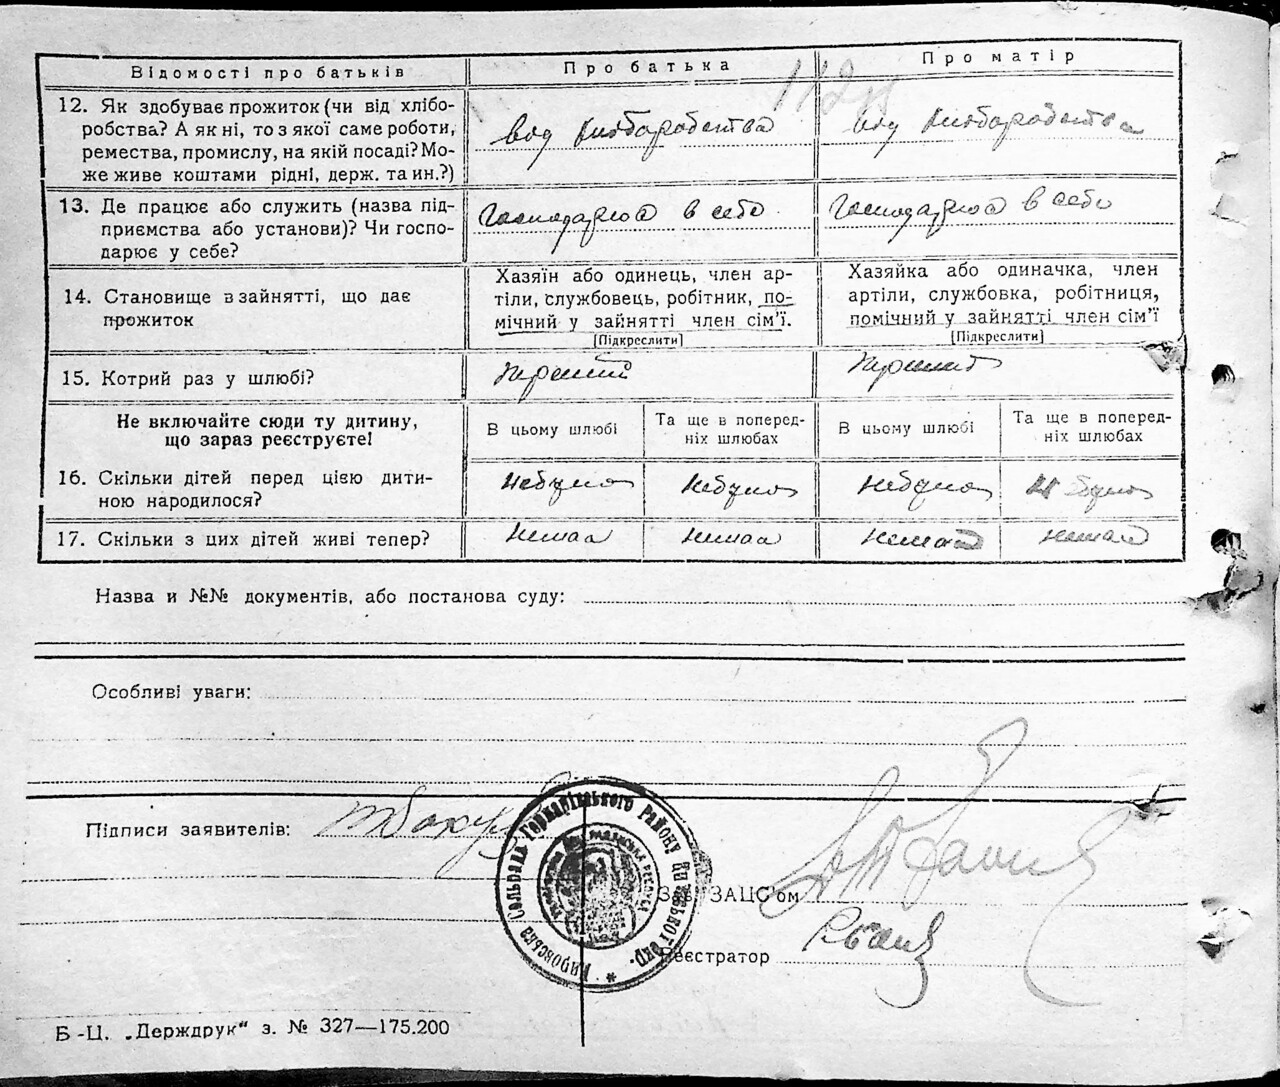 Відомості про батьків
Про батька
Про матір
12. Як здобуває прожиток (чи від хлібо-
робства? А як ні, то з якої саме роботи,
ремества, промислу, на якій посаді? Мо-
же живе коштами рідні, держ. та ин.?)
вод хліборобства
вод хліборобства
13. Де працює або служить (назва під-
приємства або установи)? Чи госпо-
дарює у себе?
Господарюя в себе
Господарюя в себе
14. Становище в зайнятті, що дає
прожиток
Хазяїн або одинець, член ар-
тіли, службовець, робітник, по-
мічний у зайнятті член сім'ї.
[Підкреслити]
Хазяйка або одиначка, член
артіли, службовка, робітниця,
помічний у зайнятті член сім'ї
[Підкреслити]
15. Котрий раз у шлюбі?
перший
Не включайте сюди ту дитину,
що зараз реєструєте!
В цьому шлюбі
Та ще в поперед-
ніх шлюбах
В цьому шлюбі
Та ще в поперед-
ніх шлюбах
16. Скільки дітей перед цією дити-
ною народилося?
небуло
небуло
небуло
не було
17. Скільки з цих дітей живі тепер?
немаа
немаа
немаа
немаа
Назва и №№ документів, або постанова суду:
Особливі уваги:
Підписи заявителів:
Зав. ЗАЦС'ом
Реєстратор
Б-Ц. „Держдрук“ з. № 327—175.200